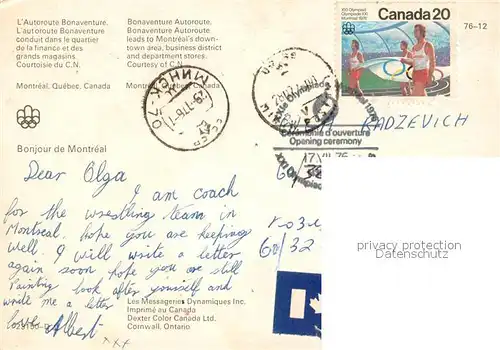 L'Autoroute Bonaventure.
L'autoroute Bonaventure
conduit dans le quartier
de la finance et des
grands magasins.
Courtoisie du C.N.
Montréal, Québec, Canada
Bonaventure Autoroute.
Bonaventure Autoroute
leads to Montréal's down-
town area, business district
and department stores.
Courtesy of C.N.
Montréal, Québec, Canada
XXI Olympiad
Olympiade XXI
Montréal 1976
Canada 20
76-12
МИНСК-70
RADZEVICH
Cérémonie d'ouverture
Opening ceremony
17 VII 76
XXI Olympiad
Bonjour de Montréal
Dear Olga
I am coach
for the wrestling team in
Montreal. Hope you are keeping
well. I will write a letter
again soon hope you are still
Painting look after yourself and
write me a letter
love Albert xxx
60/32
privacy protection
Datenschutz
Les Messageries Dynamiques Inc.
Imprimé au Canada
Dexter Color Canada Ltd.
Cornwall, Ontario